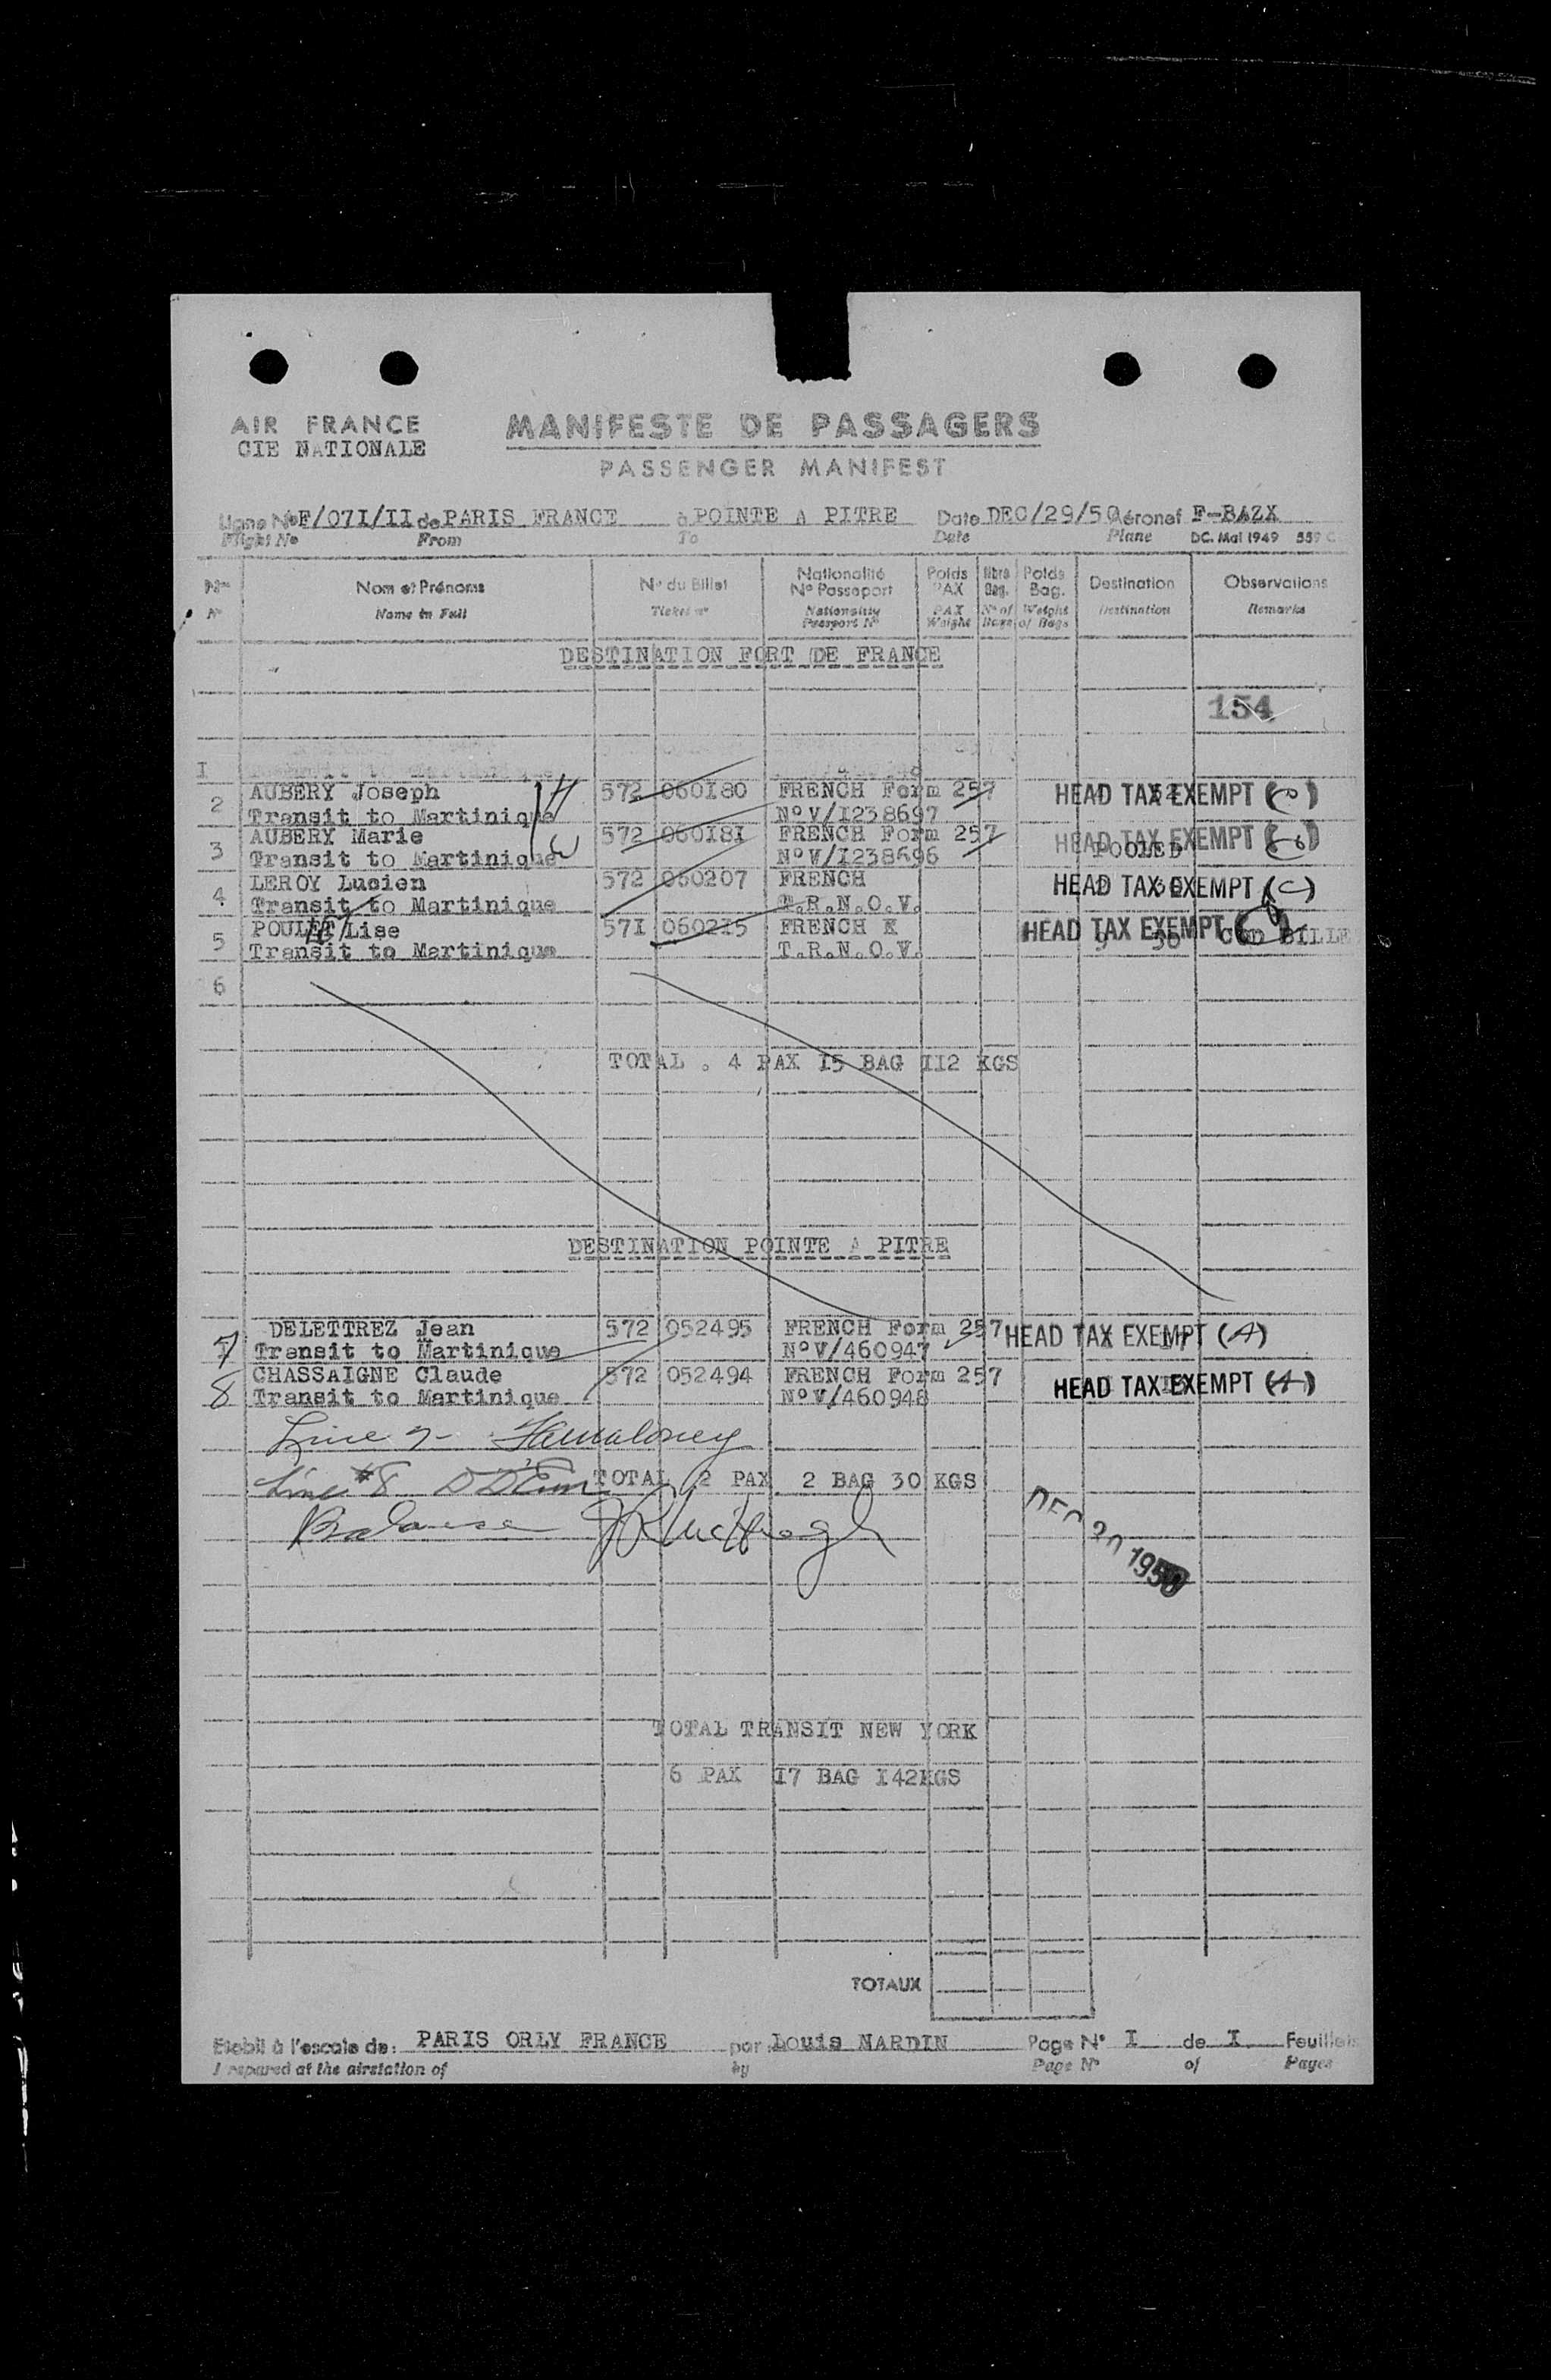 AIR FRANCE
CIE NATIONALE
MANIFESTE DE PASSAGERS
PASSENGER MANIFEST
Ligne No F/07I/II de PARIS FRANCE à POINTE A PITRE Date DEC/29/50 Aéronef F-BAZX
Flight No From To Date Plane DC. Mai 1949 559 C
Nos Nom et Prénoms No du Billet Nationalité No Passeport Poids PAX Nbre Bag. Poids Bag. Destination Observations
No Name in Full Ticket no Nationality Passport No PAX Weight No of Bags Weight of Bags Destination Remarks
DESTINATION FORT DE FRANCE
154
I
2 AUBERY Joseph H 572 060I80 FRENCH Form 257 HEAD TAX EXEMPT (C)
Transit to Martinique No V/I238697
3 AUBERY Marie W 572 060I8I FRENCH Form 257 POOLED HEAD TAX EXEMPT
Transit to Martinique No V/I238696
4 LEROY Lucien 572 060207 FRENCH HEAD TAX EXEMPT (C)
Transit to Martinique T.R.N.O.V.
5 POULET Lise 57I 0602I5 FRENCH K HEAD TAX EXEMPT 9 30 BILLE
Transit to Martinique T.R.N.O.V.
6
TOTAL . 4 PAX I5 BAG II2 KGS
DESTINATION POINTE A PITRE
7 DELETTREZ Jean 572 052495 FRENCH Form 257 HEAD TAX EXEMPT (A)
Transit to Martinique No V/460947
8 CHASSAIGNE Claude 572 052494 FRENCH Form 257 HEAD TAX EXEMPT (A)
Transit to Martinique No V/460948
Line 7-
Line #8
TOTAL 2 PAX 2 BAG 30 KGS
Balance
DEC 1950
TOTAL TRANSIT NEW YORK
6 PAX I7 BAG I42KGS
TOTAUX
Etabli à l'escale de: PARIS ORLY FRANCE par Louis NARDIN Page No I de I Feuillets
Prepared at the airstation of by Page No of Pages